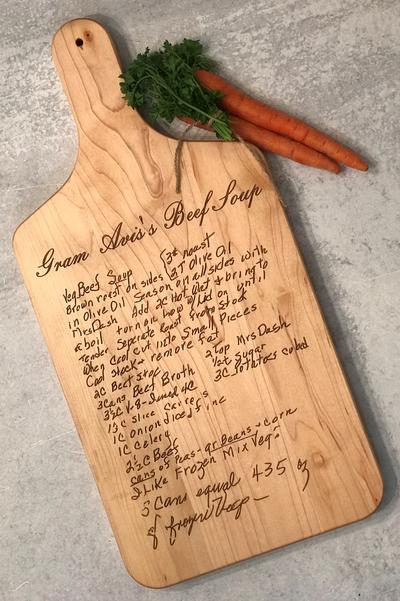 Gram Avis's Beef Soup
Veg Beef Soup 3# roast
Brown roast on sides 2T Olive Oil
in Olive Oil Season on all sides with
Mrs Dash Add 2C Hot Wet & bring to
a boil turn on low w/Lid on until
tender Seperate Roast From Stock
When Cool cut into Small Pieces
Cool Stock & remove fat
2C Beef Stock 2 Tbsp Mrs Dash
3 Cans Beef Broth Sugar
V-8 3C Potatoes cubed
1½C Slice
1C Onion diced fine
1C Celery
2½C Beef
cans of Peas - gr Beans - corn
I Like Frozen Mix Veg
3 Cans equal 435 g
of frozen